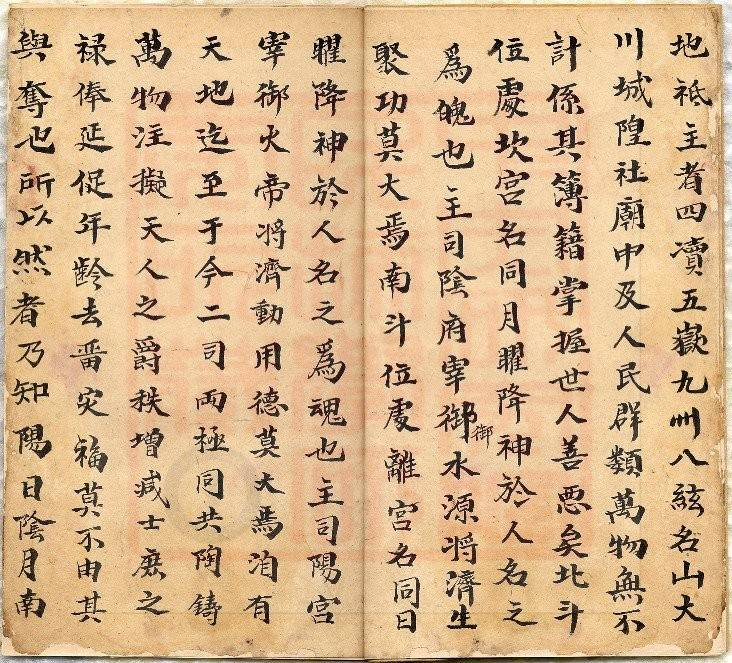 地祗主者四瀆五嶽九州八紘名山大
川城隍社廟中及人民群類萬物無不
計係其簿籍掌握世人善悪矣北斗
位處坎宮名同月曜降神於人名之
為魄也主司陰府宰御水源將濟生
御
聚功莫大焉南斗位處離宮名同日
曜降神於人名之為魂也主司陽宮
宰御火帝將濟動用德莫大焉洎有
天地迄至于今二司兩極同共陶鑄
萬物注擬天人之爵秩增減士庶之
禄俸延促年齡去畱灾福莫不由其
與奪也所以然者乃知陽日陰月南